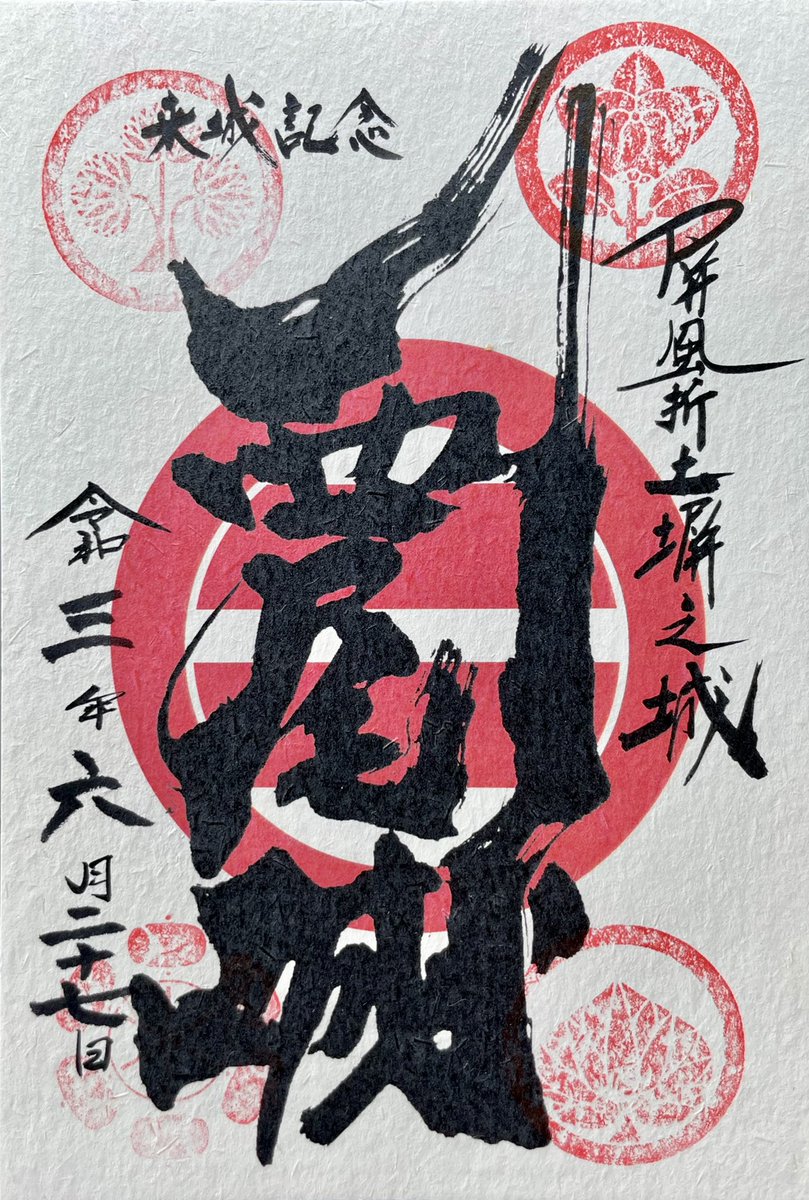 来城記念
屏風折土塀之城
西尾城
令和三年六月二十七日